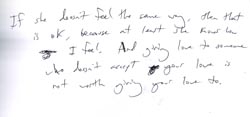 If she doesn't feel the same way, then that
is OK, because at least she knows how
I feel. And giving love to someone
who doesn't accept your love is
not worth giving your love to.